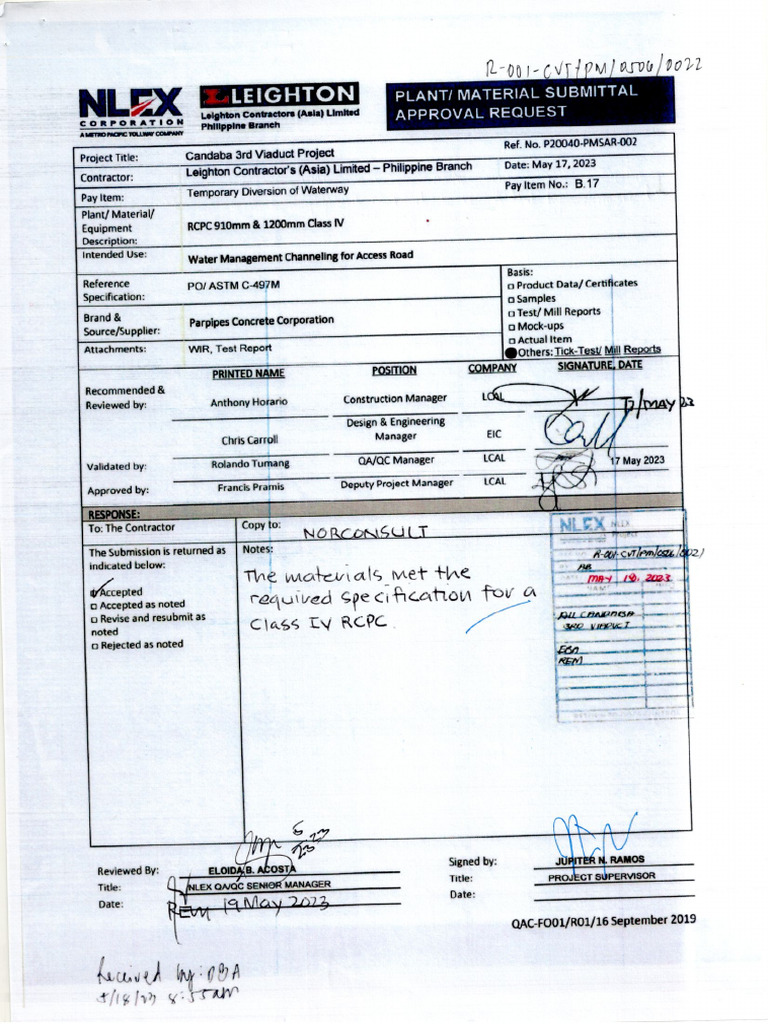 R-001-CVT/PM/0506/0022
NLEX
CORPORATION
A METRO PACIFIC TOLLWAY COMPANY
LEIGHTON
Leighton Contractors (Asia) Limited
Philippine Branch
PLANT/ MATERIAL SUBMITTAL
APPROVAL REQUEST
Project Title: Candaba 3rd Viaduct Project
Ref. No. P20040-PMSAR-002
Contractor: Leighton Contractor's (Asia) Limited – Philippine Branch
Date: May 17, 2023
Pay Item: Temporary Diversion of Waterway
Pay Item No.: B.17
Plant/ Material/
Equipment
Description:
RCPC 910mm & 1200mm Class IV
Intended Use: Water Management Channeling for Access Road
Reference
Specification:
PO/ ASTM C-497M
Brand &
Source/Supplier:
Parpipes Concrete Corporation
Attachments: WIR, Test Report
Basis:
Product Data/ Certificates
Samples
Test/ Mill Reports
Mock-ups
Actual Item
Others: Tick-Test/ Mill Reports
PRINTED NAME POSITION COMPANY SIGNATURE, DATE
Recommended &
Reviewed by:
Anthony Horario Construction Manager LCAL 17/MAY 23
Chris Carroll Design & Engineering
Manager EIC
Validated by: Rolando Tumang QA/QC Manager LCAL 17 May 2023
Approved by: Francis Pramis Deputy Project Manager LCAL
RESPONSE:
To: The Contractor
Copy to: NORCONSULT
The Submission is returned as
indicated below:
Accepted
Accepted as noted
Revise and resubmit as
noted
Rejected as noted
Notes:
The materials met the
required specification for a
Class IV RCPC.
NLEX NLEX
R-001-CVT/PM/0506/0021
AB
MAY 18, 2023
ALL CANDABA
3RD VIADUCT
EBA
REM
Reviewed By: ELOIDA B. ACOSTA
Title: NLEX QA/QC SENIOR MANAGER
Date: 19 May 2023
REM
Signed by: JUPITER N. RAMOS
Title: PROJECT SUPERVISOR
Date:
QAC-FO01/R01/16 September 2019
Received by: DBA
5/18/23 8:55am